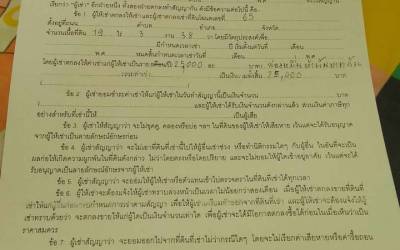 เรียกว่า "ผู้เช่า" อีกฝ่ายหนึ่ง ทั้งสองฝ่ายตกลงทำสัญญากัน ดังมีข้อความต่อไปนี้ คือ
ข้อ 1 ผู้ให้เช่าตกลงให้เช่าและผู้เช่าตกลงเช่าที่ดินโฉนดเลขที่ 65
ตั้งอยู่ที่ถนน ตำบล อำเภอ จังหวัด
จำนวนเนื้อที่ 19 ไร่ 3 งาน 38 วา โดยมีวัตถุประสงค์เพื่อ
มีกำหนดเวลาเช่า ปี เริ่มตั้งแต่วันที่ เดือน
พ.ศ. หมดสิ้นกำหนดเวลาเช่าวันที่ เดือน พ.ศ.
โดยผู้เช่าตกลงให้ค่าเช่าแก่ผู้ให้เช่าเป็นราย 25,000 ละ บาท
เป็นเงิน 25,000 บาท
ข้อ 2. ผู้เช่ายอมชำระค่าเช่าให้แก่ผู้ให้เช่าในวันทำสัญญานี้เป็นเงินจำนวน
และผู้ให้เช่าได้รับเงินจำนวนดังกล่าวแล้ว ส่วนเงินค่าภาษีทุก
อย่างสำหรับที่เช่านี้ให้ เป็นผู้เสีย
ข้อ 3. ผู้ให้เช่าสัญญาว่า จะไม่ขุดคู, คลองหรือบ่อ ฯลฯ ในที่ดินของผู้ให้เช่าให้เสียหาย เว้นแต่จะได้รับอนุญาต
จากผู้ให้เช่าเป็นลายลักษณ์อักษรก่อน
ข้อ 4. ผู้เช่าสัญญาว่า จะไม่เอาที่ดินที่เช่านี้ไปให้ผู้อื่นเช่าช่วง หรือทำนิติกรรมใดๆ กับผู้อื่น ในอันที่จะเป็น
ผลก่อให้เกิดความผูกพันในที่ดินดังกล่าว ไม่ว่าโดยตรงหรือโดยปริยาย และจะไม่ยอมให้ผู้ใดเข้าอยู่อาศัย เว้นแต่จะได้
รับอนุญาตเป็นลายลักษณ์อักษรจากผู้ให้เช่า
ข้อ 5. ผู้เช่าสัญญาว่า จะยอมให้ผู้ให้เช่าหรือตัวแทนเข้าไปตรวจตราในที่ดินที่เช่าได้ทุกเวลา
ข้อ 6. ผู้ให้เช่าจะต้องแจ้งให้ผู้เช่าทราบล่วงหน้าเป็นเวลาไม่น้อยกว่าสองเดือน เมื่อผู้ให้เช่าตกลงขายที่ดินที่
ผู้ให้เช่าจะต้องแจ้งให้ผู้เช่า
ทราบด้วยว่า จะตกลงขายให้แก่ผู้ใดเป็นเงินจำนวนเท่าใด เพื่อผู้เช่าจะได้มีโอกาสตกลงซื้อได้ก่อนในเมื่อเห็นว่าเป็น
ราคาสมควร
ข้อ 7. ผู้เช่าสัญญาว่า จะยอมออกไปจากที่ดินที่เช่าไม่ว่ากรณีใดๆ โดยจะไม่เรียกค่าเสียหายหรือค่ารื้อถอน